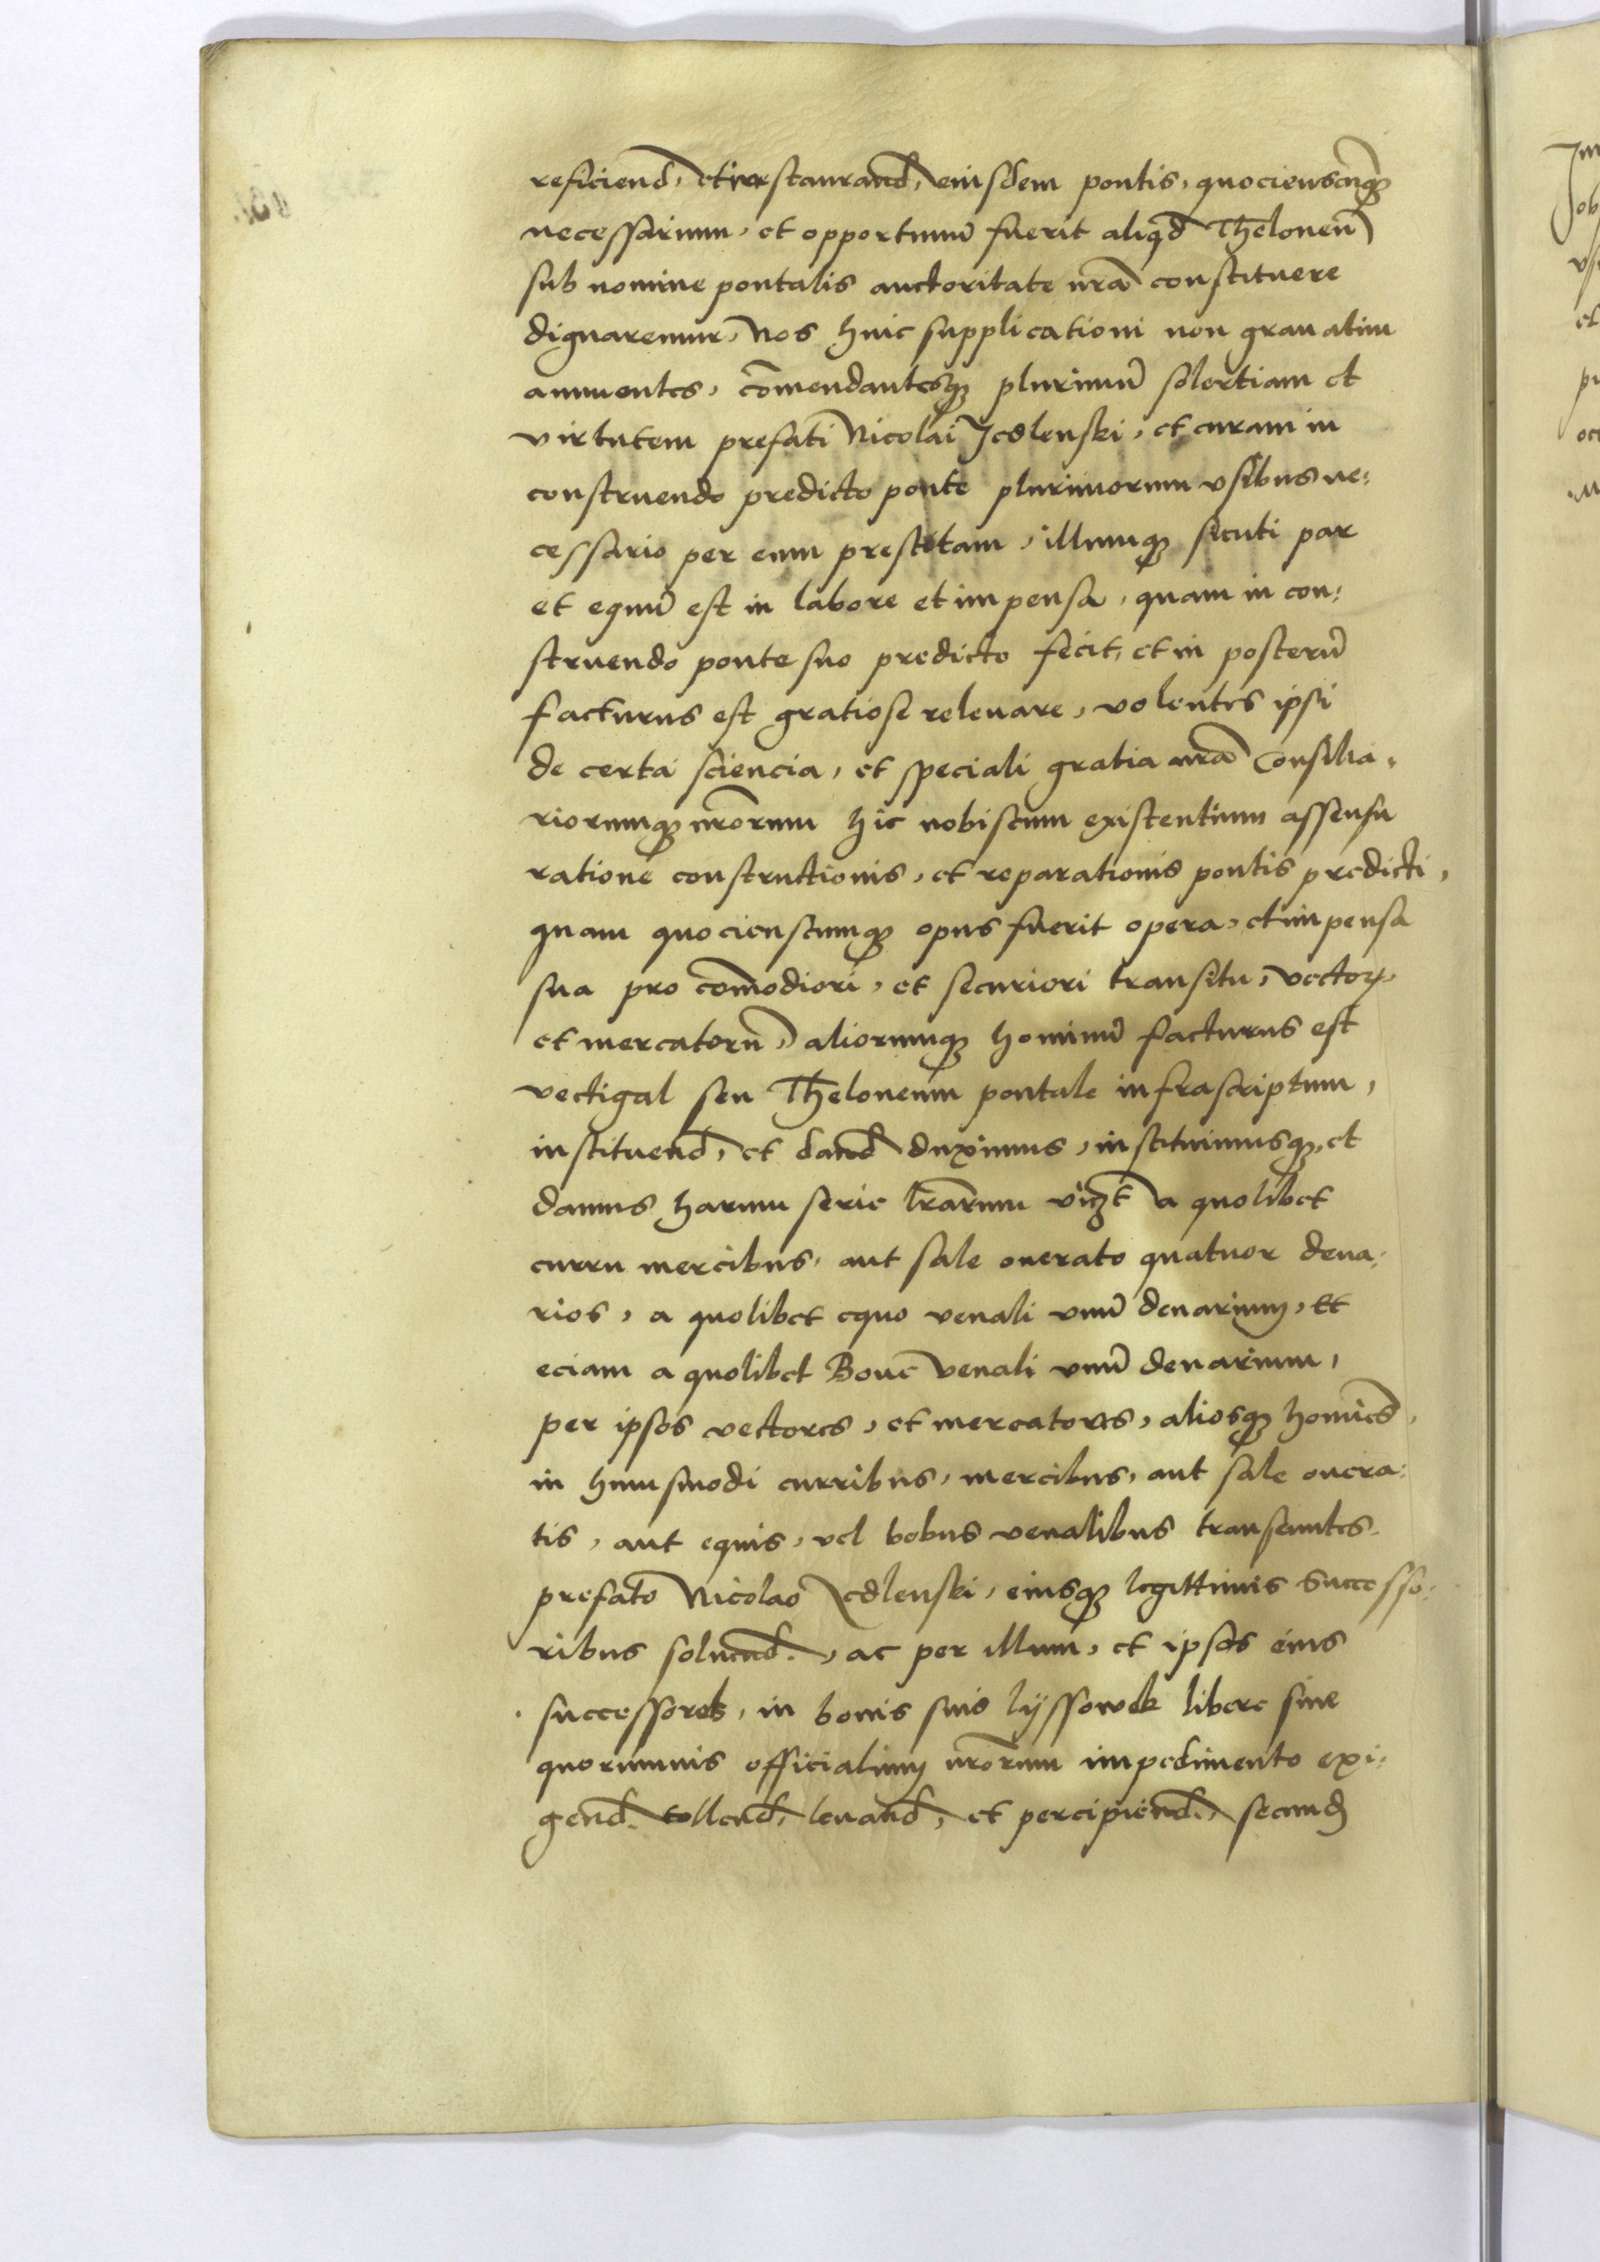 reficiend, et instaurand, eiusdem pontis, quocienscunq3
necessarium, et opportunū fuerit aliqd Theloneū
sub nomine pontalis auctoritate nrā constituere
dignaremur, Nos huic supplicationi non grauatim
annuentes, cōmendantesq3 plurimū solertiam et
virtutem prefati Nicolai Jedlenski, et curam in
construendo predicto ponte plurimorum vsibus ne:
cessario per eum prestitam, illumq3 sicuti par
et equū est in labore et impensa, quam in con:
struendo ponte suo predicto fecit, et in posterū
facturus est gratiose releuare, volentes ipsi
de certa sciencia, et speciali gratia nrā Consilia:
riorumq3 nrōrum hic nobiscum existentium assensu
ratione constructionis, et reparationis pontis predicti,
quam quocienscumq3 opus fuerit opera, et impensa
sua pro cōmodiori, et securiori transitu, vectoꝝ
et mercatorū, aliorumq3 hominū facturus est
vectigal seu Theloneum pontale infrascriptum,
instituend, et dand duximus, instituimusq3, et
damus harum serie lrārum vicz3t a quolibet
curru mercibus, aut sale onerato quatuor dena:
rios, a quolibet equo venali vnū denarium, Et
eciam a quolibet Boue venali vnū denarium,
per ipsos vectores, et mercatores, aliosq3 homīes,
in huiusmodi curribus, mercibus, aut sale onera:
tis, aut equis, vel bobus venalibus transeuntes
prefato Nicolao Jedlenski, eiusq3 legittimis successo:
ribus soluend., ac per illum, et ipsos eius
successores, in bonis suis lyssowek libere sine
quorumuis officialium nrōrum impedimento exi:
gend. tollend, leuand, et percipiend., secund